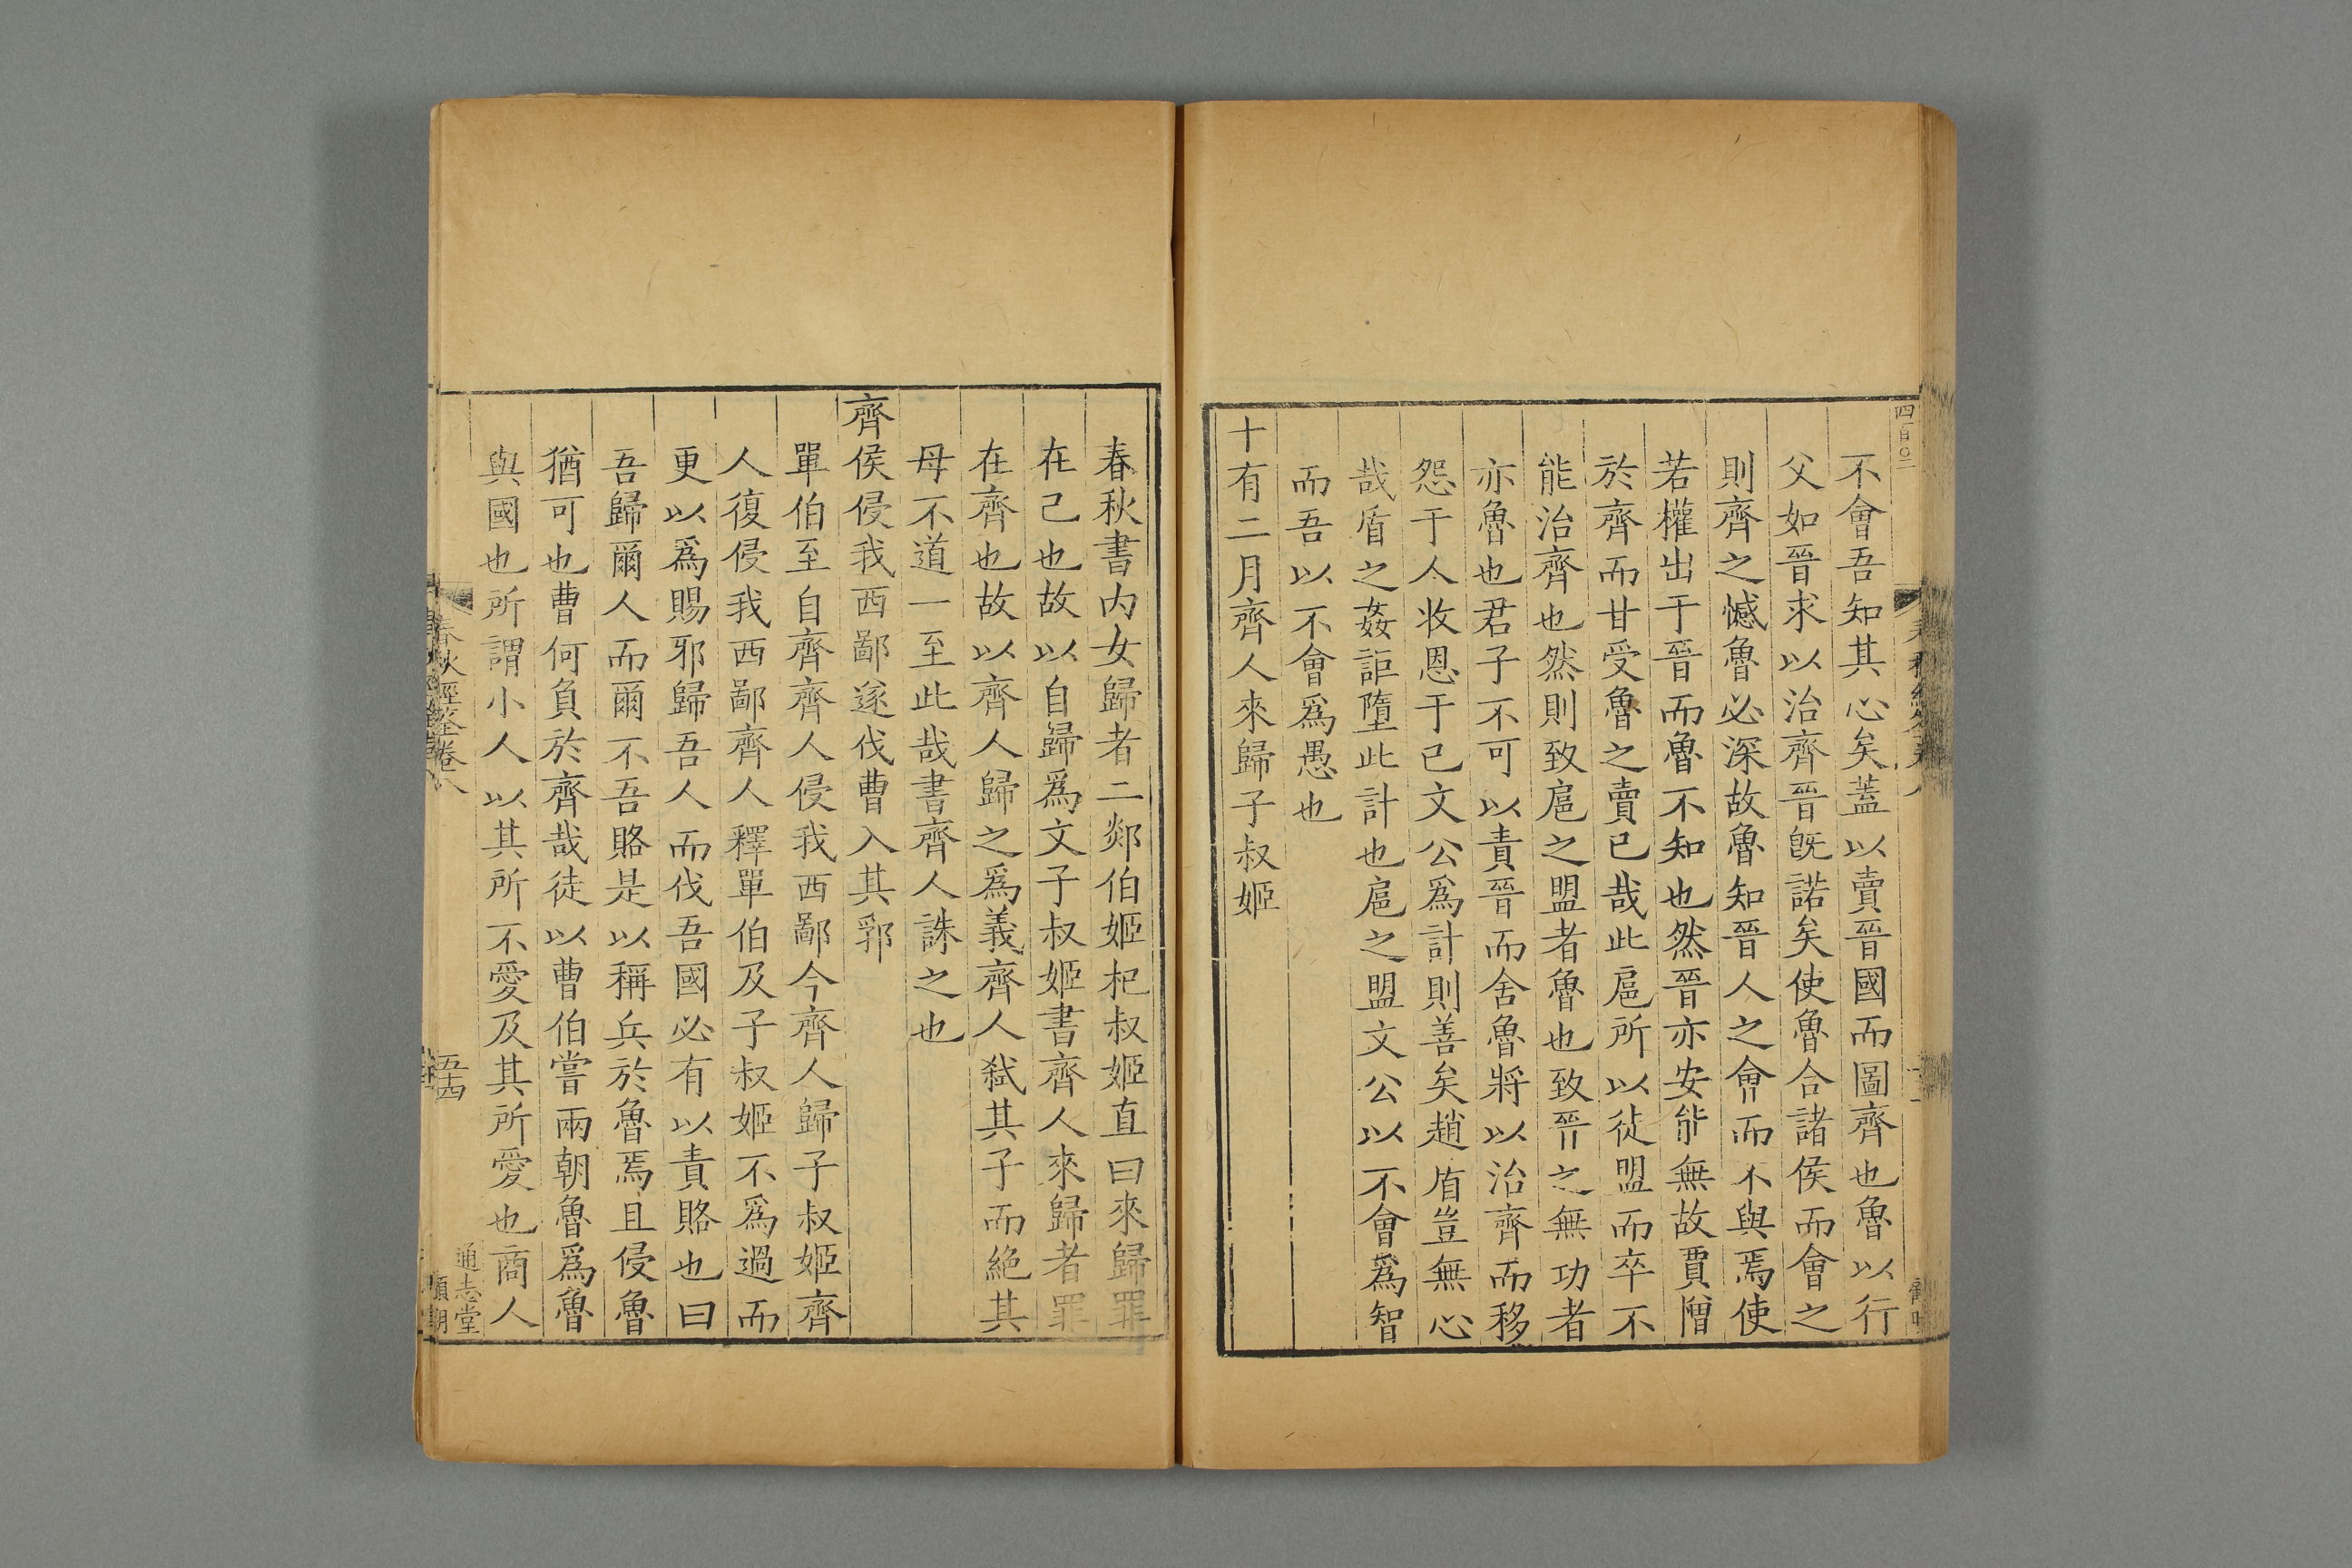 四百〇二
不會吾知其心矣蓋以賣晉國而圖齊也魯以行
父如晉求以治齊晉旣諾矣使魯合諸侯而會之
則齊之憾魯必深故魯知晉人之會而不與焉使
若權出于晉而魯不知也然晉亦安能無故賈憎
於齊而甘受魯之賣已哉此扈所以徒盟而卒不
能治齊也然則致扈之盟者魯也致晉之無功者
亦魯也君子不可以責晉而舍魯將以治齊而移
怨于人收恩于已文公爲計則善矣趙盾豈無心
哉盾之姦詎墮此計也扈之盟文公以不會爲智
而吾以不會爲愚也
十有二月齊人來歸子叔姬
春秋書内女歸者二郯伯姬杞叔姬直曰來歸罪
在己也故以自歸爲文子叔姬書齊人來歸者罪
在齊也故以齊人歸之爲義齊人弒其子而絕其
母不道一至此哉書齊人誅之也
齊侯侵我西鄙遂伐曹入其郛
單伯至自齊齊人侵我西鄙今齊人歸子叔姬齊
人復侵我西鄙齊人釋單伯及子叔姬不爲過而
更以爲賜邪歸吾人而伐吾國必有以責賂也曰
吾歸爾人而爾不吾賂是以稱兵於魯焉且侵魯
猶可也曹何負於齊哉徒以曹伯嘗兩朝魯爲魯
與國也所謂小人以其所不愛及其所愛也商人
春秋經筌卷八
五十四
通志堂